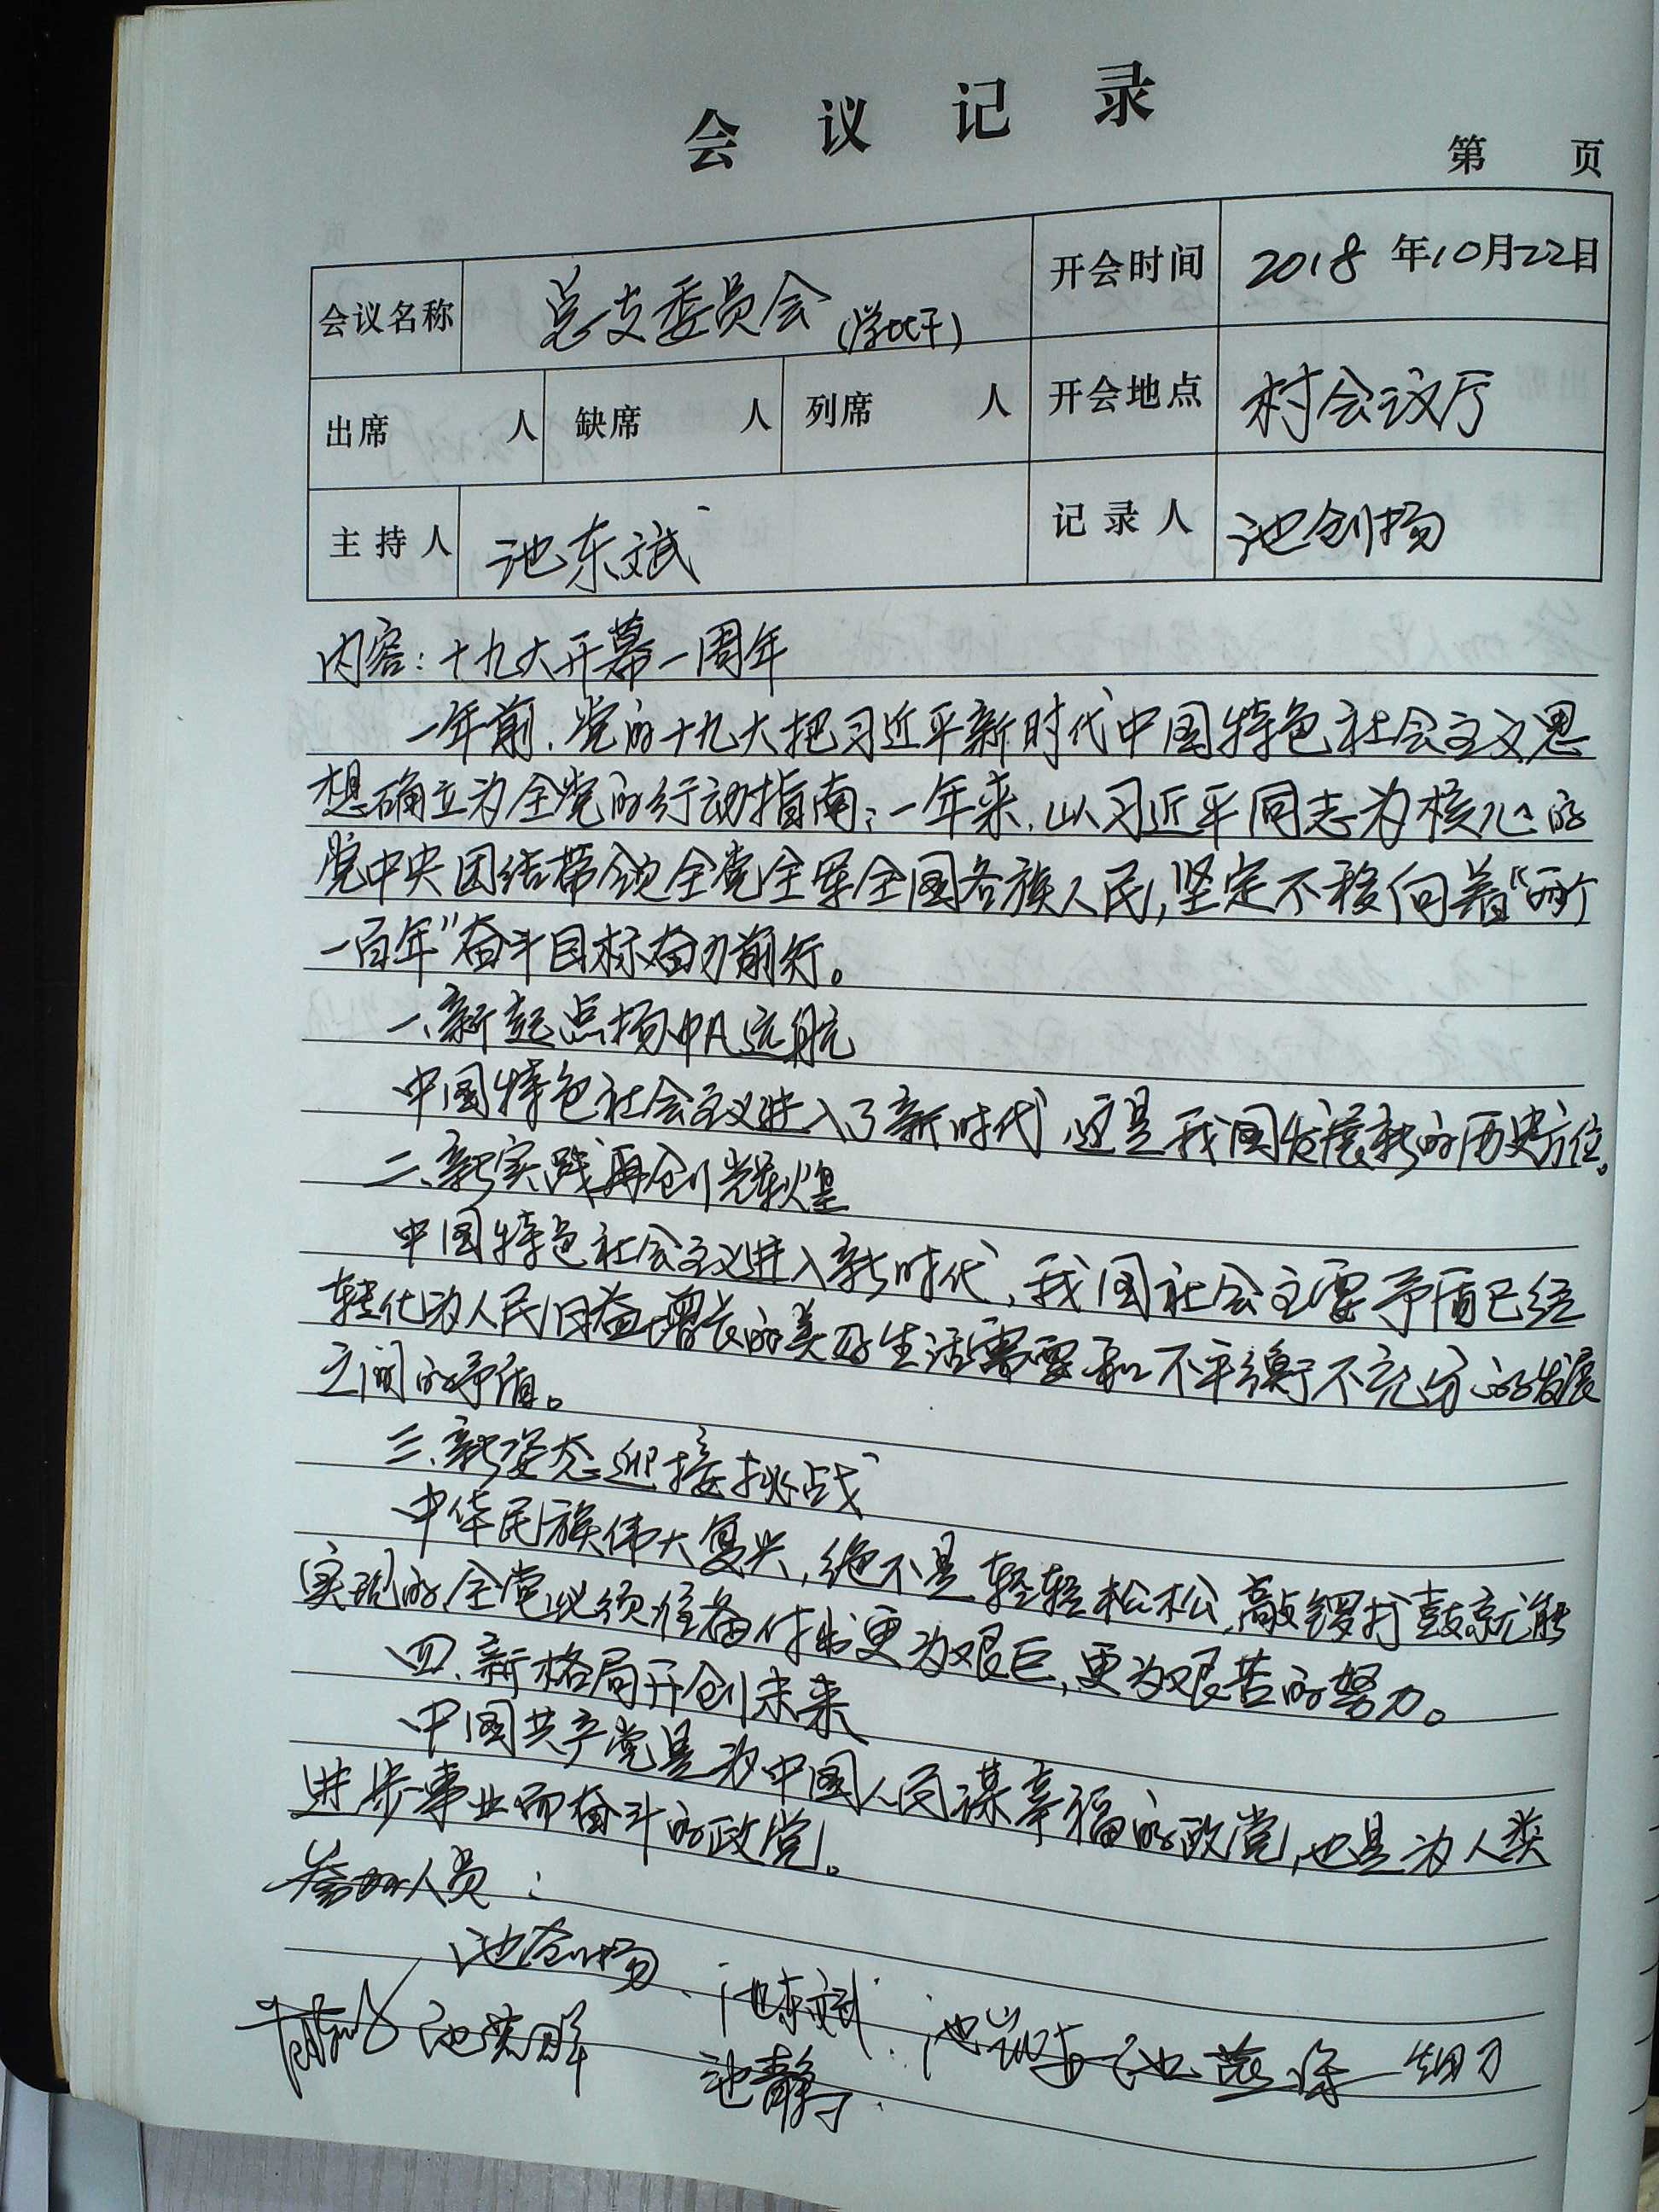 会议记录
第 页
会议名称 总支委员会 开会时间 2018年10月22日
出席 人 缺席 人 列席 人 开会地点 村会议厅
主持人 池东斌 记录人 池创扬
内容:十九大开幕一周年
一年前,党的十九大把习近平新时代中国特色社会主义思
想确立为全党的行动指南;一年来,以习近平同志为核心的
党中央团结带领全党全军全国各族人民,坚定不移向着“两个
一百年”奋斗目标奋力前行。
一、新起点扬帆远航
中国特色社会主义进入了新时代,这是我国发展新的历史方位。
二、新实践再创辉煌
中国特色社会主义进入新时代,我国社会主要矛盾已经
转化为人民日益增长的美好生活需要和不平衡不充分的发展
之间的矛盾。
三、新姿态迎接挑战
中华民族伟大复兴,绝不是轻轻松松,敲锣打鼓就能
实现的,全党必须准备付出更为艰巨,更为艰苦的努力。
四、新格局开创未来
中国共产党是为中国人民谋幸福的政党,也是为人类
进步事业而奋斗的政党。
参加人员:
池创扬 池东斌
池静